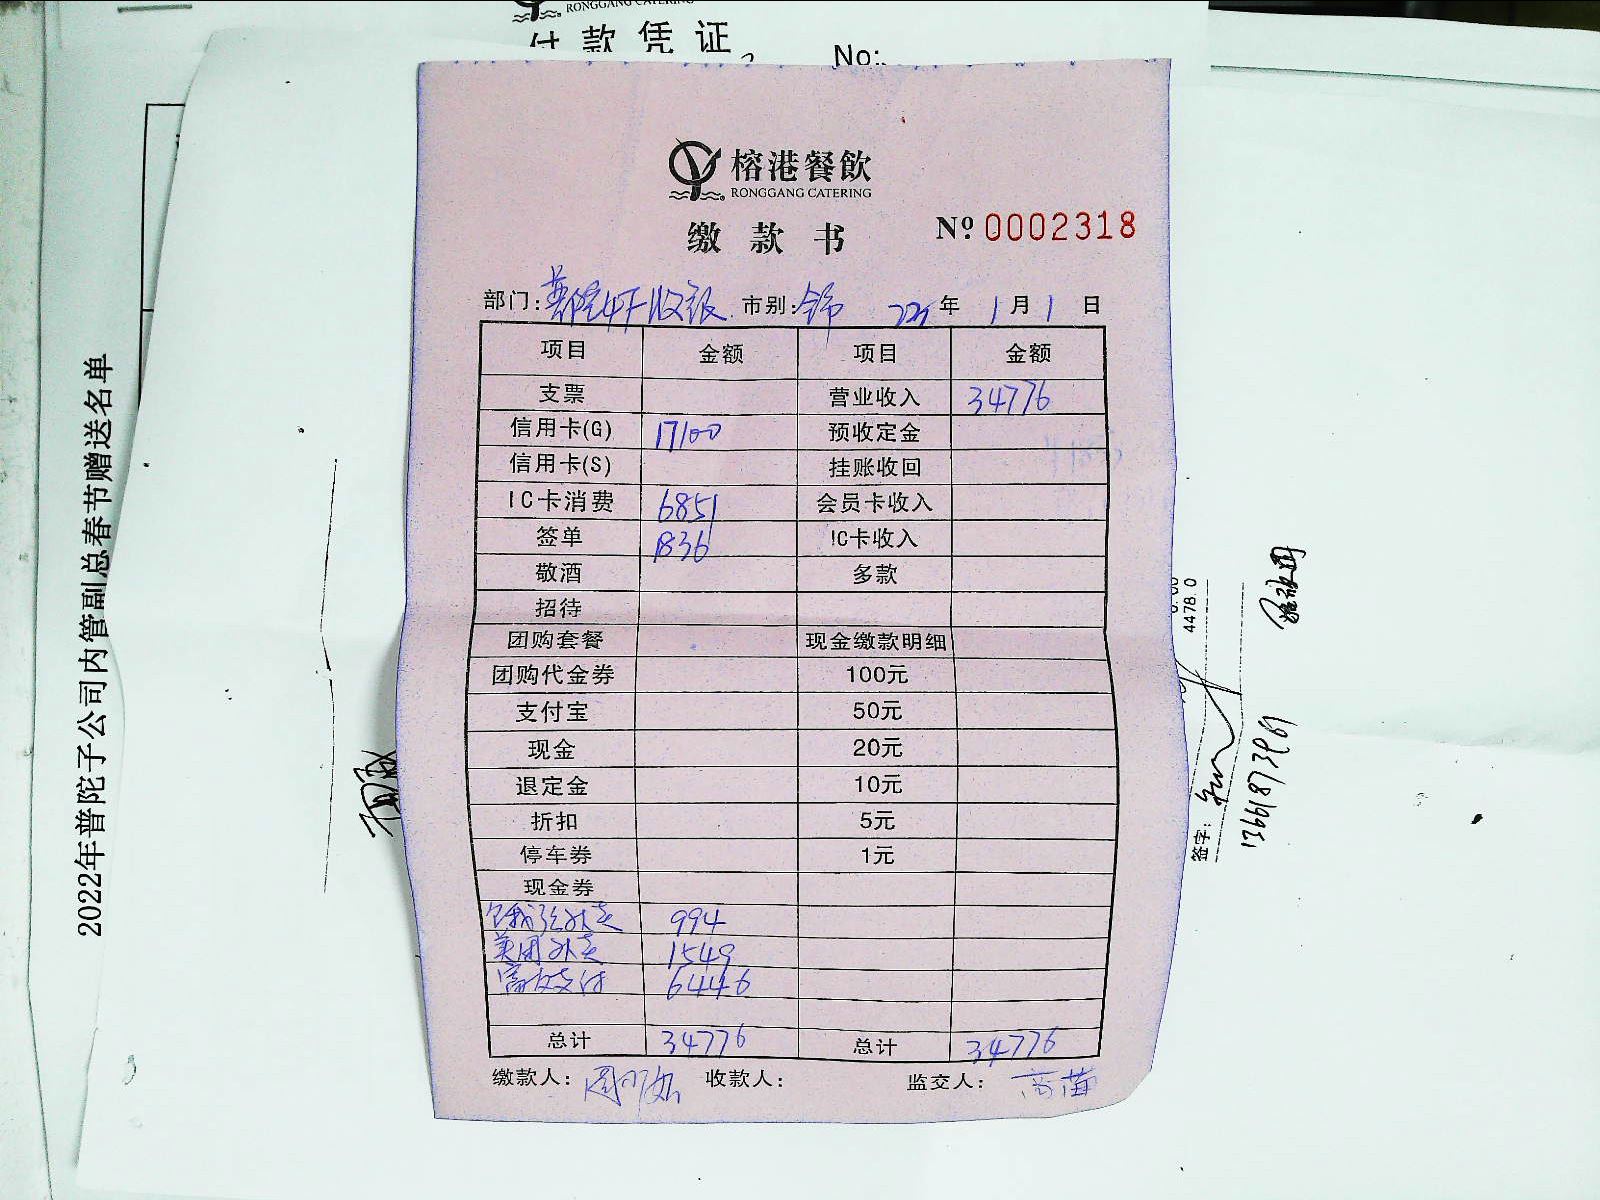 RONGGANG CATERING
付款凭证
No:
2022年普陀子公司内管副总春节赠送名单
榕港餐飲
RONGGANG CATERING
缴款书
№ 0002318
部门: 普陀4F收银 市别: 全市 年 1月1日
项目 金额 项目 金额
支票 营业收入 34776
信用卡(G) 17100 预收定金
信用卡(S) 挂账收回
IC卡消费 6851 会员卡收入
签单 1836 IC卡收入
敬酒 多款
招待
团购套餐 现金缴款明细
团购代金券 100元
支付宝 50元
现金 20元
退定金 10元
折扣 5元
停车券 1元
现金券
外卖 994
美团外卖 1549
支付 6446
总计 34776 总计 34776
缴款人: 收款人: 监交人:
4478.0
签字: